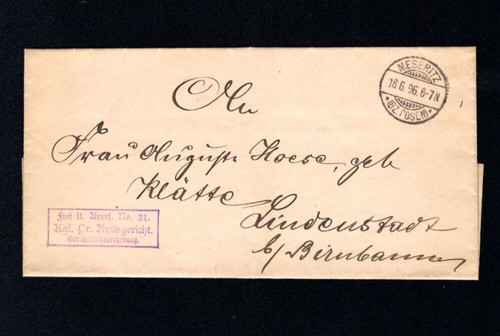 An
Frau Auguste Hoese, geb
Klätte
Lindenstadt
b/ Birnbaum
MESERITZ
18.6.96.6-7N
*(BZ.POSEN)*
Frei lt. Avers. No. 21.
Kgl. Pr. Amtsgericht.